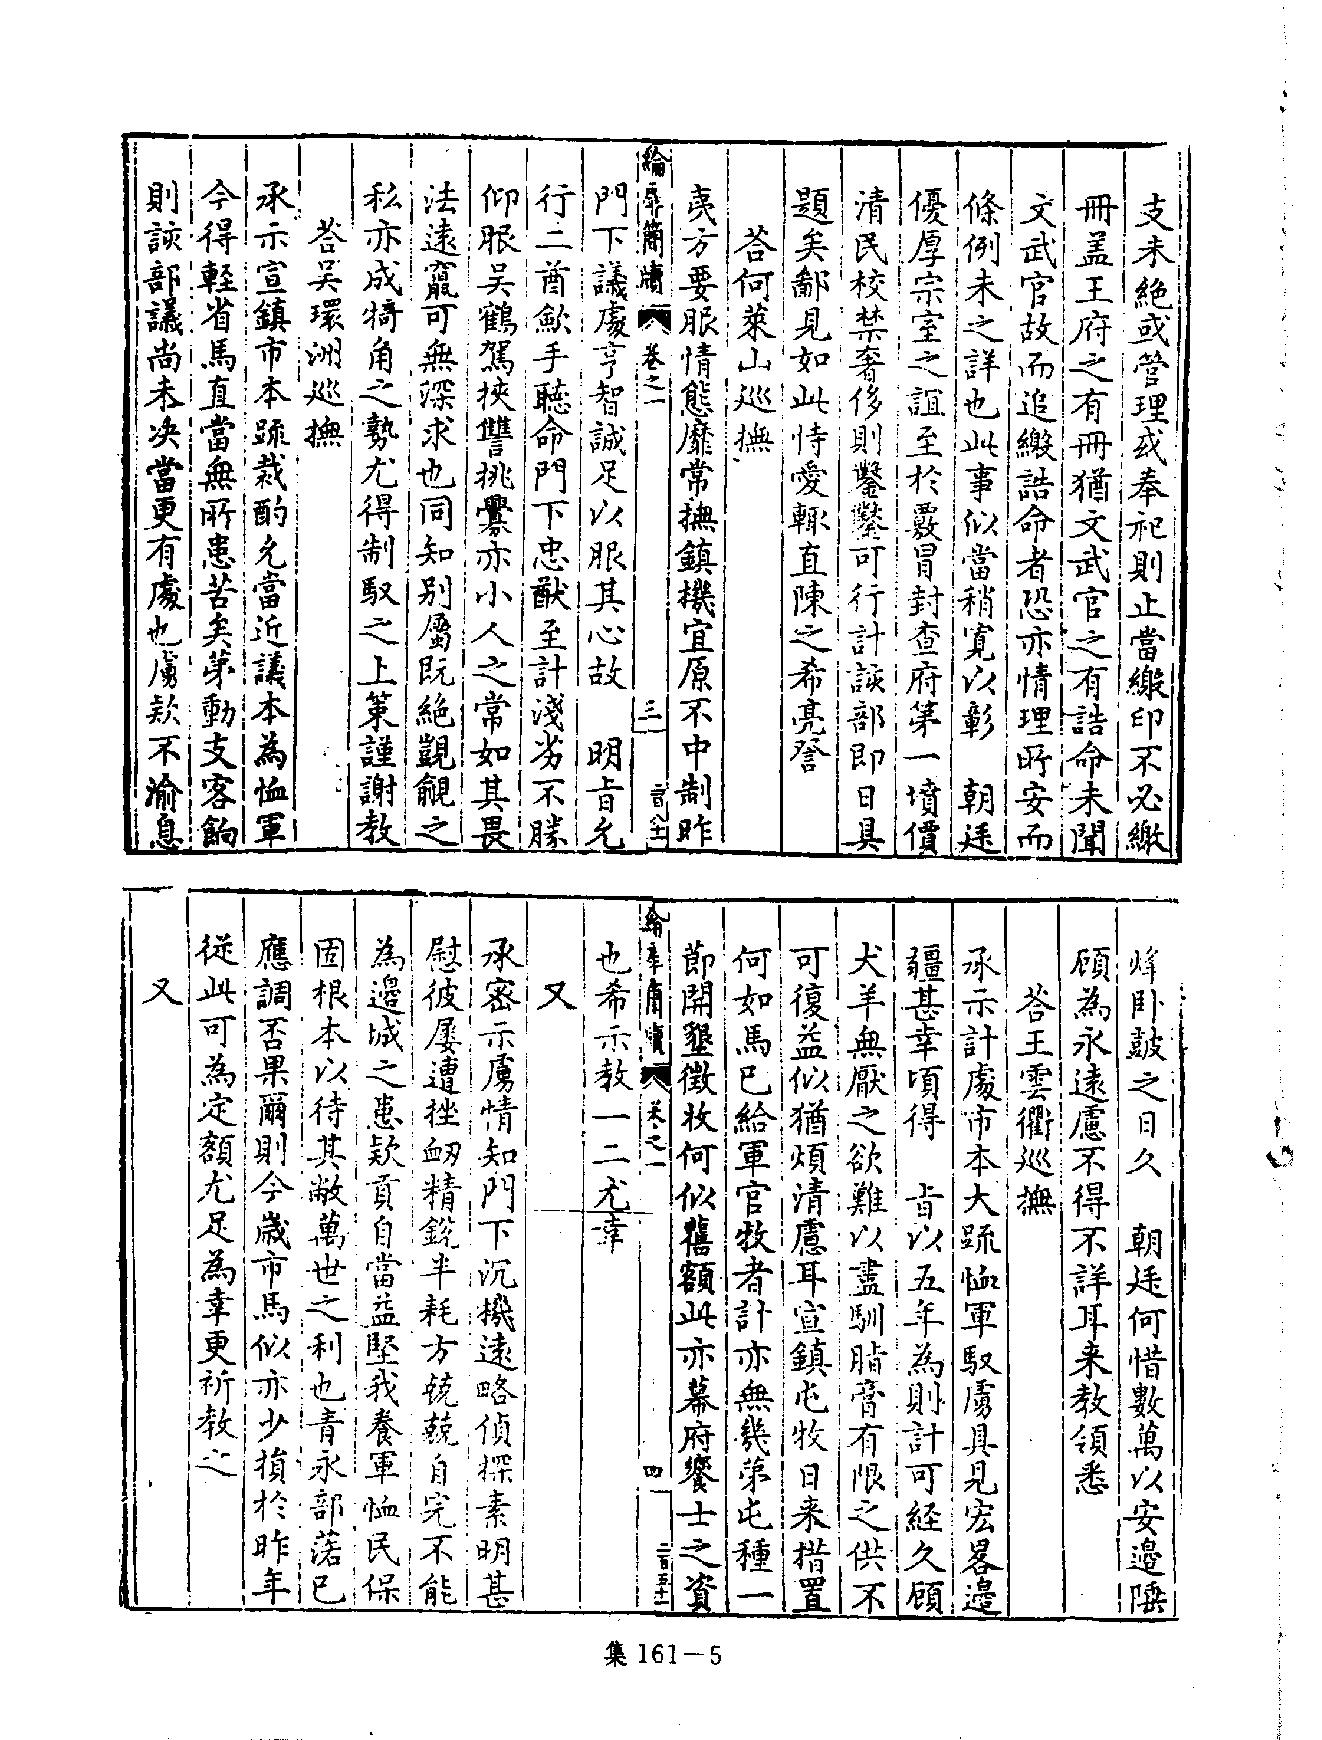 支未絶或管理或奉祀則止當繳印不必繳
冊盖王府之有冊猶文武官之有誥命未聞
文武官故而追繳誥命者恐亦情理所安而
條例未之詳也此事似當稍寬以彰 朝廷
優厚宗室之誼至於覈冒封查府第一墳價
清民校禁奢侈則鑿鑿可行計該部即日具
題矣鄙見如此恃愛輒直陳之希亮詧
荅何萊山巡撫
夷方要服情態靡常撫鎮機宜原不中制昨
綸扉簡牘 卷之一 三
門下議處亨智誠足以服其心故 明旨允
行二酋歛手聽命門下忠猷至計淺劣不勝
仰服吳鶴駕挾讐挑釁亦小人之常如其畏
法遠竄可無深求也同知别屬既絶覬覦之
私亦成犄角之勢尤得制馭之上策謹謝教
荅吳環洲巡撫
承示宣鎮市本疏裁酌允當近議本為恤軍
今得輕省馬直當無所患苦矣苐動支客餉
則該部議尚未决當更有處也虜欵不渝息
烽卧鼓之日久 朝廷何惜數萬以安邉陲
顧為永遠慮不得不詳耳来教領悉
荅王雲衢巡撫
承示計處市本大疏恤軍馭虜具見宏畧邉
疆甚幸頃得 旨以五年為則計可経久顧
犬羊無厭之欲難以盡馴脂膏有限之供不
可復益似猶煩清慮耳宣鎮屯牧日来措置
何如馬已給軍官牧者計亦無幾苐屯種一
節開墾徵收何似舊額此亦幕府饗士之資
綸扉簡牘 卷之一 四
也希示教一二尤幸
又
承密示虜情知門下沉機遠略偵探素明甚
慰彼屡遭挫衂精鋭半耗方兢兢自完不能
為邉城之患欵貢自當益堅我養軍恤民保
固根本以待其敝萬世之利也青永部落已
應調否果爾則今歲市馬似亦少損於昨年
從此可為定額尤足為幸更祈教之
又
集 161－5